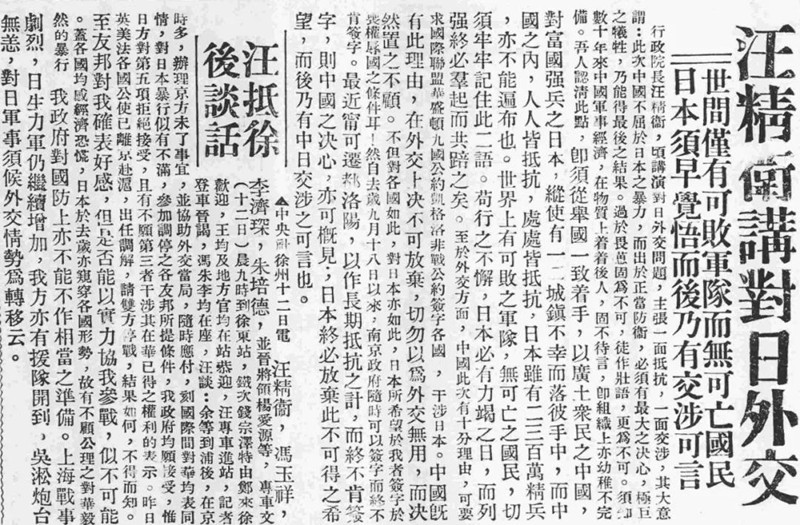 汪精衛講對日外交
世間僅有可敗軍隊而無可亡國民
日本須早覺悟而後乃有交涉可言
行政院長汪精衛,頃講演對日外交問題,主張一面抵抗,一面交涉,其大意
謂:此次中國不屈於日本之暴力,而出於正當防衛,必須有最大之決心,極巨
之犧牲,乃能得最後之結果。過於畏葸固爲不可,徒作壯語,更爲不可。須知
數十年來中國軍事經濟,在物質上着着後人,固不待言,卽組織上亦幼稚不完
備。吾人認清此點,卽須從舉國一致着手,以廣土衆民之中國,
對富國强兵之日本,縱使有一二城鎮不幸而落彼手中,而中
國之內,人人皆抵抗,處處皆抵抗,日本雖有二三百萬精兵
,亦不能遍布也。世界上有可敗之軍隊,無可亡之國民,切
須牢牢記住此二語。苟行之不懈,日本必有力竭之日,而列
强終必羣起而共踣之矣。至於外交方面,中國此次有十分理由,可要
求國際聯盟華盛頓九國公約凱格洛非戰公約簽字各國,干涉日本。中國旣
有此理由,在外交上决不可放棄,切勿以爲外交無用,而决
然置之不顧。不但對各國如此,對日本亦如此,日本所希望於我者簽字於
喪權辱國之條件耳!然自去歲九月十八日以來,南京政府隨時可以簽字而終不
肯簽字。最近甯可遷都洛陽,以作長期抵抗之計,而終不肯簽
字,則中國之决心,亦可概見;日本終必放棄此不可得之希
望,而後乃有中日交涉之可言也。
汪抵徐
後談話
▲中央社徐州十二日電 汪精衛,馮玉祥,
李濟琛,朱培德,並晉將領楊愛源等,專車文
(十二日)晨九時到徐東站,鐵次錢宗澤特由鄭來徐
歡迎,王均及地方官均在站恭迎,汪專車進站,記者
登車晉謁,馮朱李均在座,汪談:余等到浦後,在京
時多,辦理京方未了事宜,並協助外交當局,隨時應付,刻國際間對華均表同
情,對日本暴行似有不滿,參加調停之各友邦所提條件,我政府均願接受,惟
日方對第五項拒絕接受,且有不願第三者干涉其在華已得之權利的表示。昨日
英美法各國公使已離京赴滬,出任調解,請雙方停戰,結果如何,不得而知。
至友邦對我確表好感,但是否能以實力協我參戰,似不可能
。蓋各國均感經濟恐慌,日本於去歲亦窺穿各國形勢,故有不顧公理之對華毅
然的暴行 我政府對國防上亦不能不作相當之準備。上海戰事
劇烈,日生力軍仍繼續增加,我方亦有援隊開到,吳淞炮台
無恙,對日軍事須候外交情勢爲轉移云。